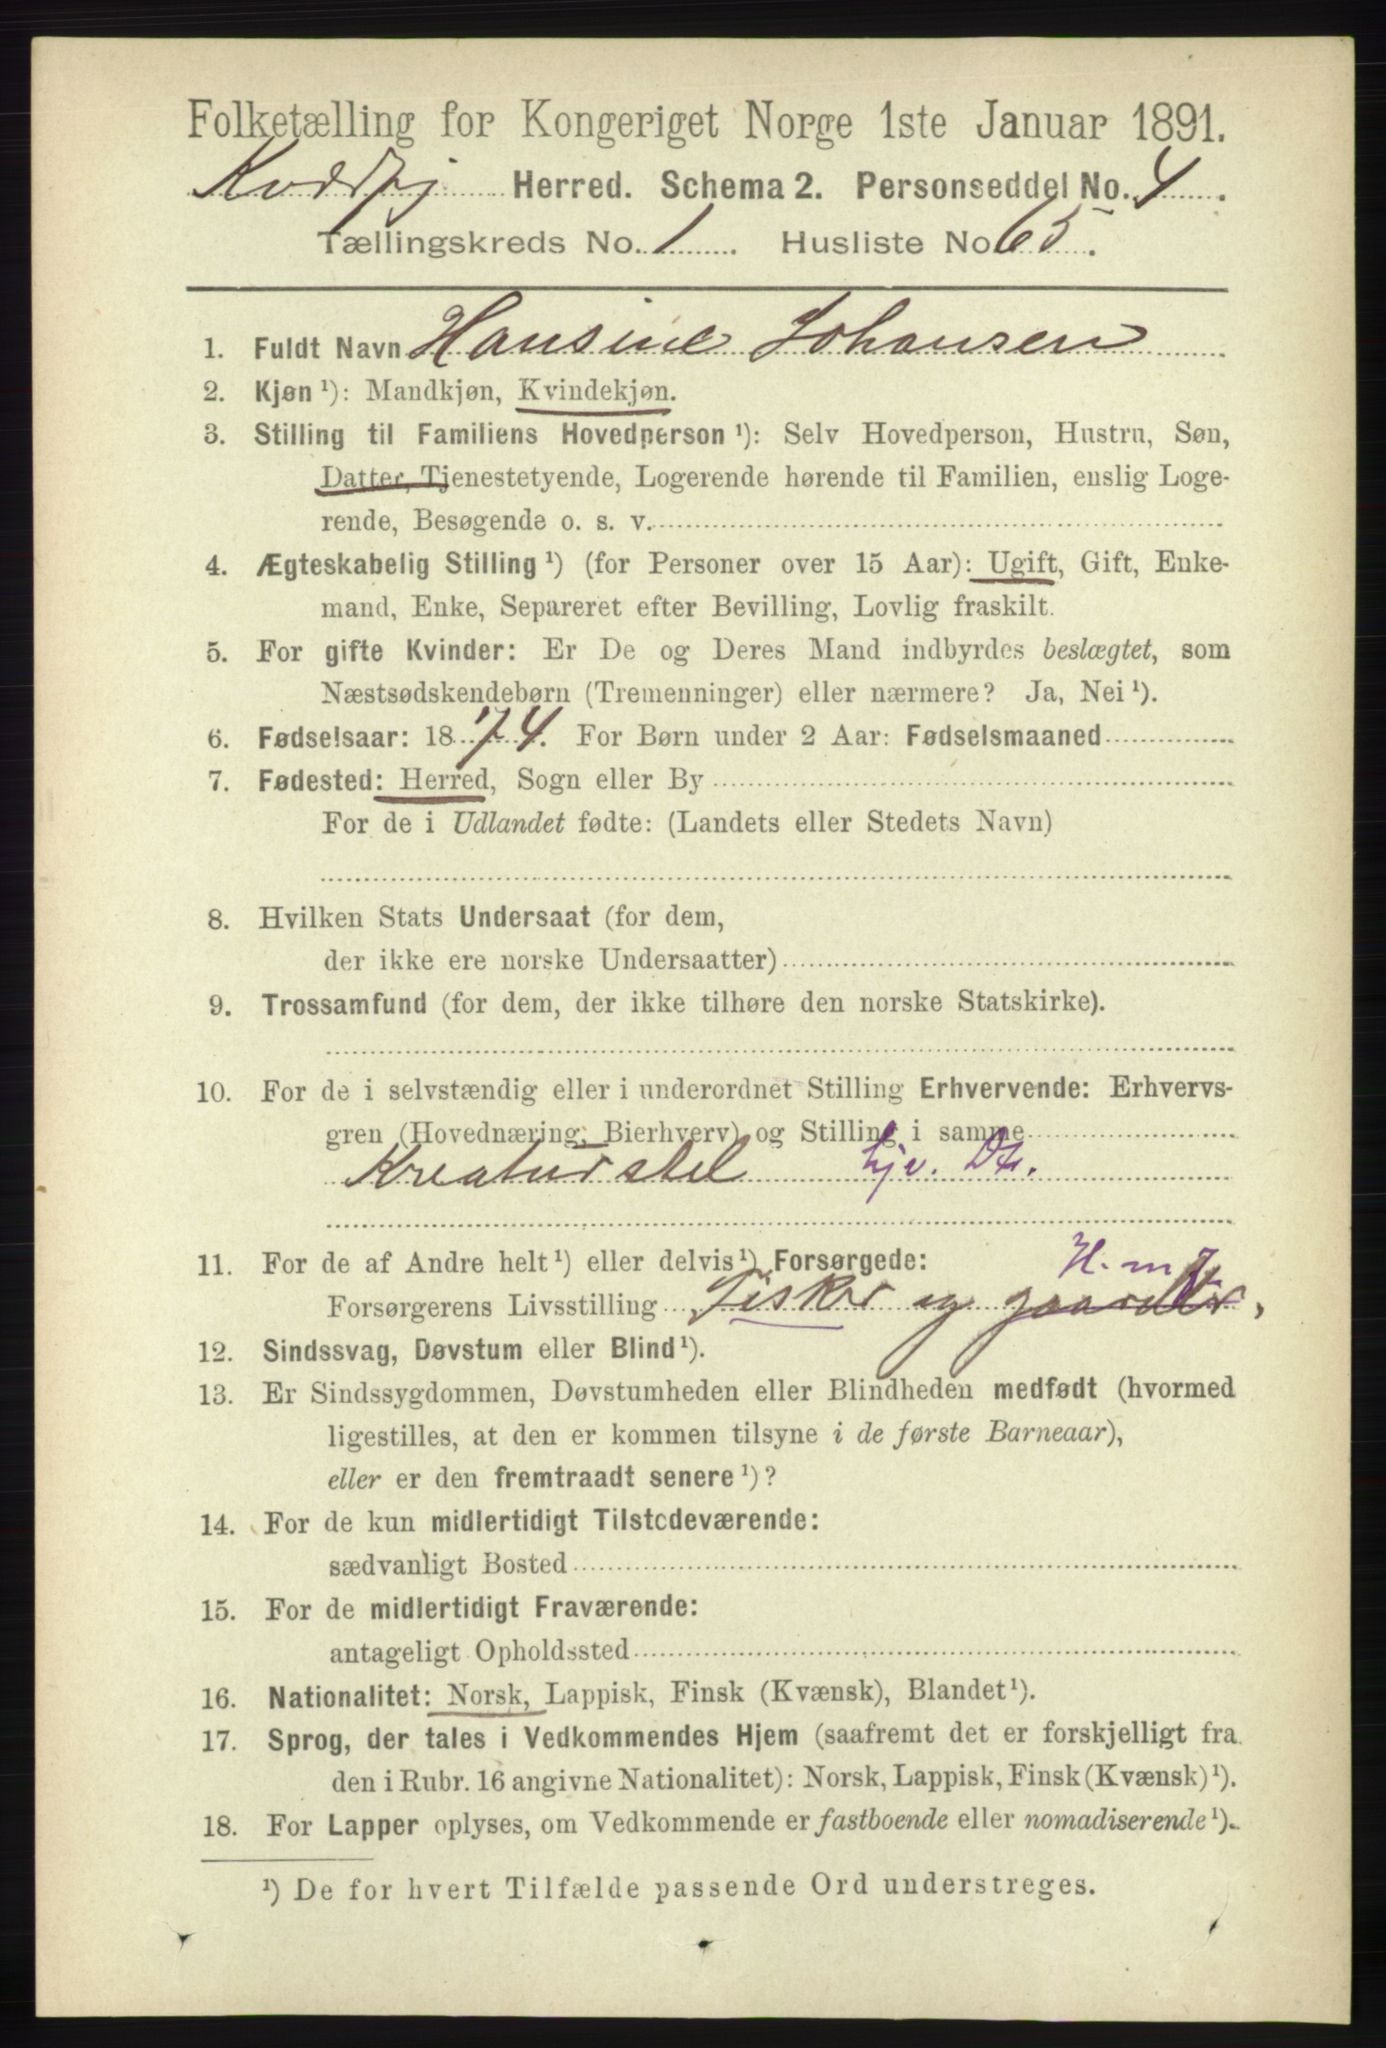 Folketælling for Kongeriget Norge 1ste Januar 1891.
Kvæfj Herred. Schema 2. Personseddel No. 4
Tællingskreds No. 1 Husliste No 65.
1. Fuldt Navn Hansine Johansen
2. Kjøn ¹): Mandkjøn, Kvindekjøn.
3. Stilling til Familiens Hovedperson ¹): Selv Hovedperson, Hustru, Søn,
Datter, Tjenestetyende, Logerende hørende til Familien, enslig Loge-
rende, Besøgende o. s. v.
4. Ægteskabelig Stilling ¹) (for Personer over 15 Aar): Ugift, Gift, Enke-
mand, Enke, Separeret efter Bevilling, Lovlig fraskilt.
5. For gifte Kvinder: Er De og Deres Mand indbyrdes beslægtet, som
Næstsødskendebørn (Tremenninger) eller nærmere? Ja, Nei ¹).
6. Fødselsaar: 1874. For Børn under 2 Aar: Fødselsmaaned
7. Fødested: Herred, Sogn eller By
For de i Udlandet fødte: (Landets eller Stedets Navn)
8. Hvilken Stats Undersaat (for dem,
der ikke ere norske Undersaatter)
9. Trossamfund (for dem, der ikke tilhøre den norske Statskirke).
10. For de i selvstændig eller i underordnet Stilling Erhvervende: Erhvervs-
gren (Hovednæring, Bierhverv) og Stilling i samme
Kreaturstel hjv. Dt.
11. For de af Andre helt ¹) eller delvis ¹) Forsørgede: H. m. J.
Forsørgerens Livsstilling Fisker og gaardbr,
12. Sindssvag, Døvstum eller Blind ¹).
13. Er Sindssygdommen, Døvstumheden eller Blindheden medfødt (hvormed
ligestilles, at den er kommen tilsyne i de første Barneaar),
eller er den fremtraadt senere ¹)?
14. For de kun midlertidigt Tilstedeværende:
sædvanligt Bosted
15. For de midlertidigt Fraværende:
antageligt Opholdssted
16. Nationalitet: Norsk, Lappisk, Finsk (Kvænsk), Blandet ¹).
17. Sprog, der tales i Vedkommendes Hjem (saafremt det er forskjelligt fra
den i Rubr. 16 angivne Nationalitet): Norsk, Lappisk, Finsk (Kvænsk) ¹).
18. For Lapper oplyses, om Vedkommende er fastboende eller nomadiserende ¹).
¹) De for hvert Tilfælde passende Ord understreges.